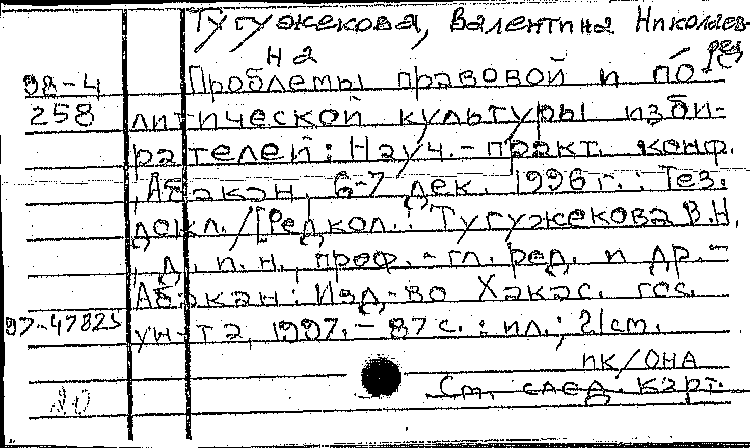 Тугужекова, Валентина Николаев-
на
ред
98-4 Проблемы правовой и по-
258 литической культуры изби-
рателей: Науч.-практ. конф.
, Абакан, 6-7 дек. 1996 г.: Тез.
докл./[Редкол.: Тугужекова В.Н.
, д. и. н., проф. - гл. ред. и др.-
Абакан: Изд-во Хакас. гос.
97-47825 ун-та, 1997. - 87 с.: ил.; 21 см.
ПК/ОНА
20 См. след. карт.